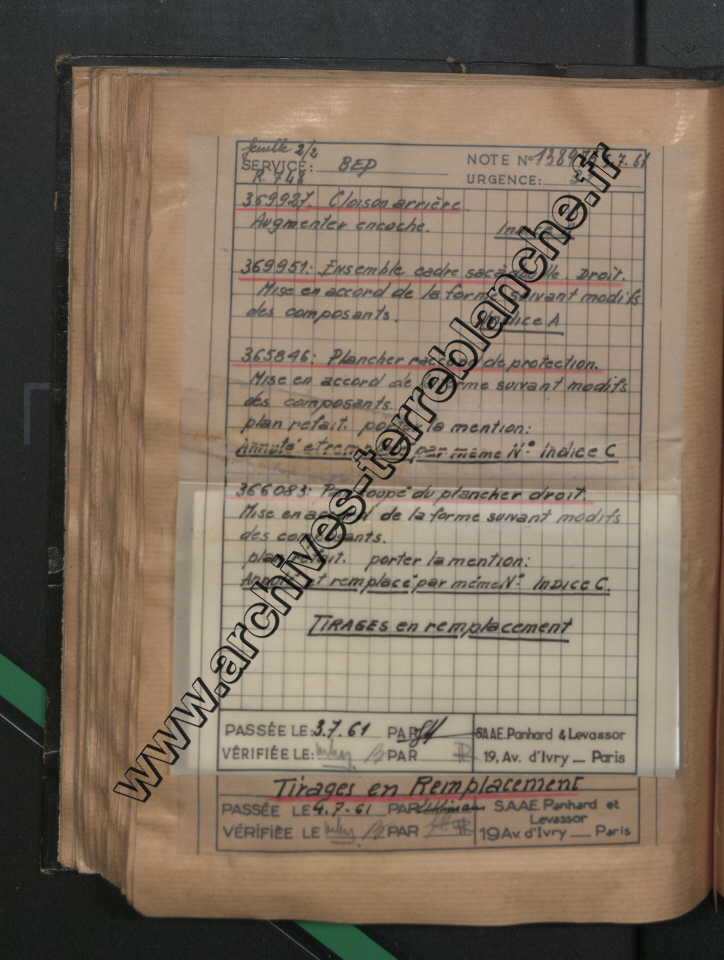 feuille 2/2
SERVICE: BEP
NOTE N° 7.61
R.748
URGENCE:
369927. Cloison arrière.
Augmenter encoche.
369951: Ensemble cadre Droit.
Mise en accord de la forme suivant modifs
des composants. Indice A
365846: Plancher raccord de protection.
Mise en accord de forme suivant modifs
des composants
plan refait. porter la mention:
Annulé et par même N° Indice C
366083: du plancher droit.
Mise en accord de la forme suivant modifs
des composants.
plan refait. porter la mention:
et remplacé par même N° INDICE C.
TIRAGES en remplacement
PASSÉE LE: 3.7.61 PAR
S.A.A.E. Panhard & Levassor
VÉRIFIÉE LE: PAR
19, Av. d'Ivry _ Paris
Tirages en Remplacement
PASSÉE LE 4.7.61 PAR
S.A.A.E. Panhard et
Levassor
VÉRIFIÉE LE PAR
19 Av. d'Ivry _ Paris
www.archives-terreblanche.fr